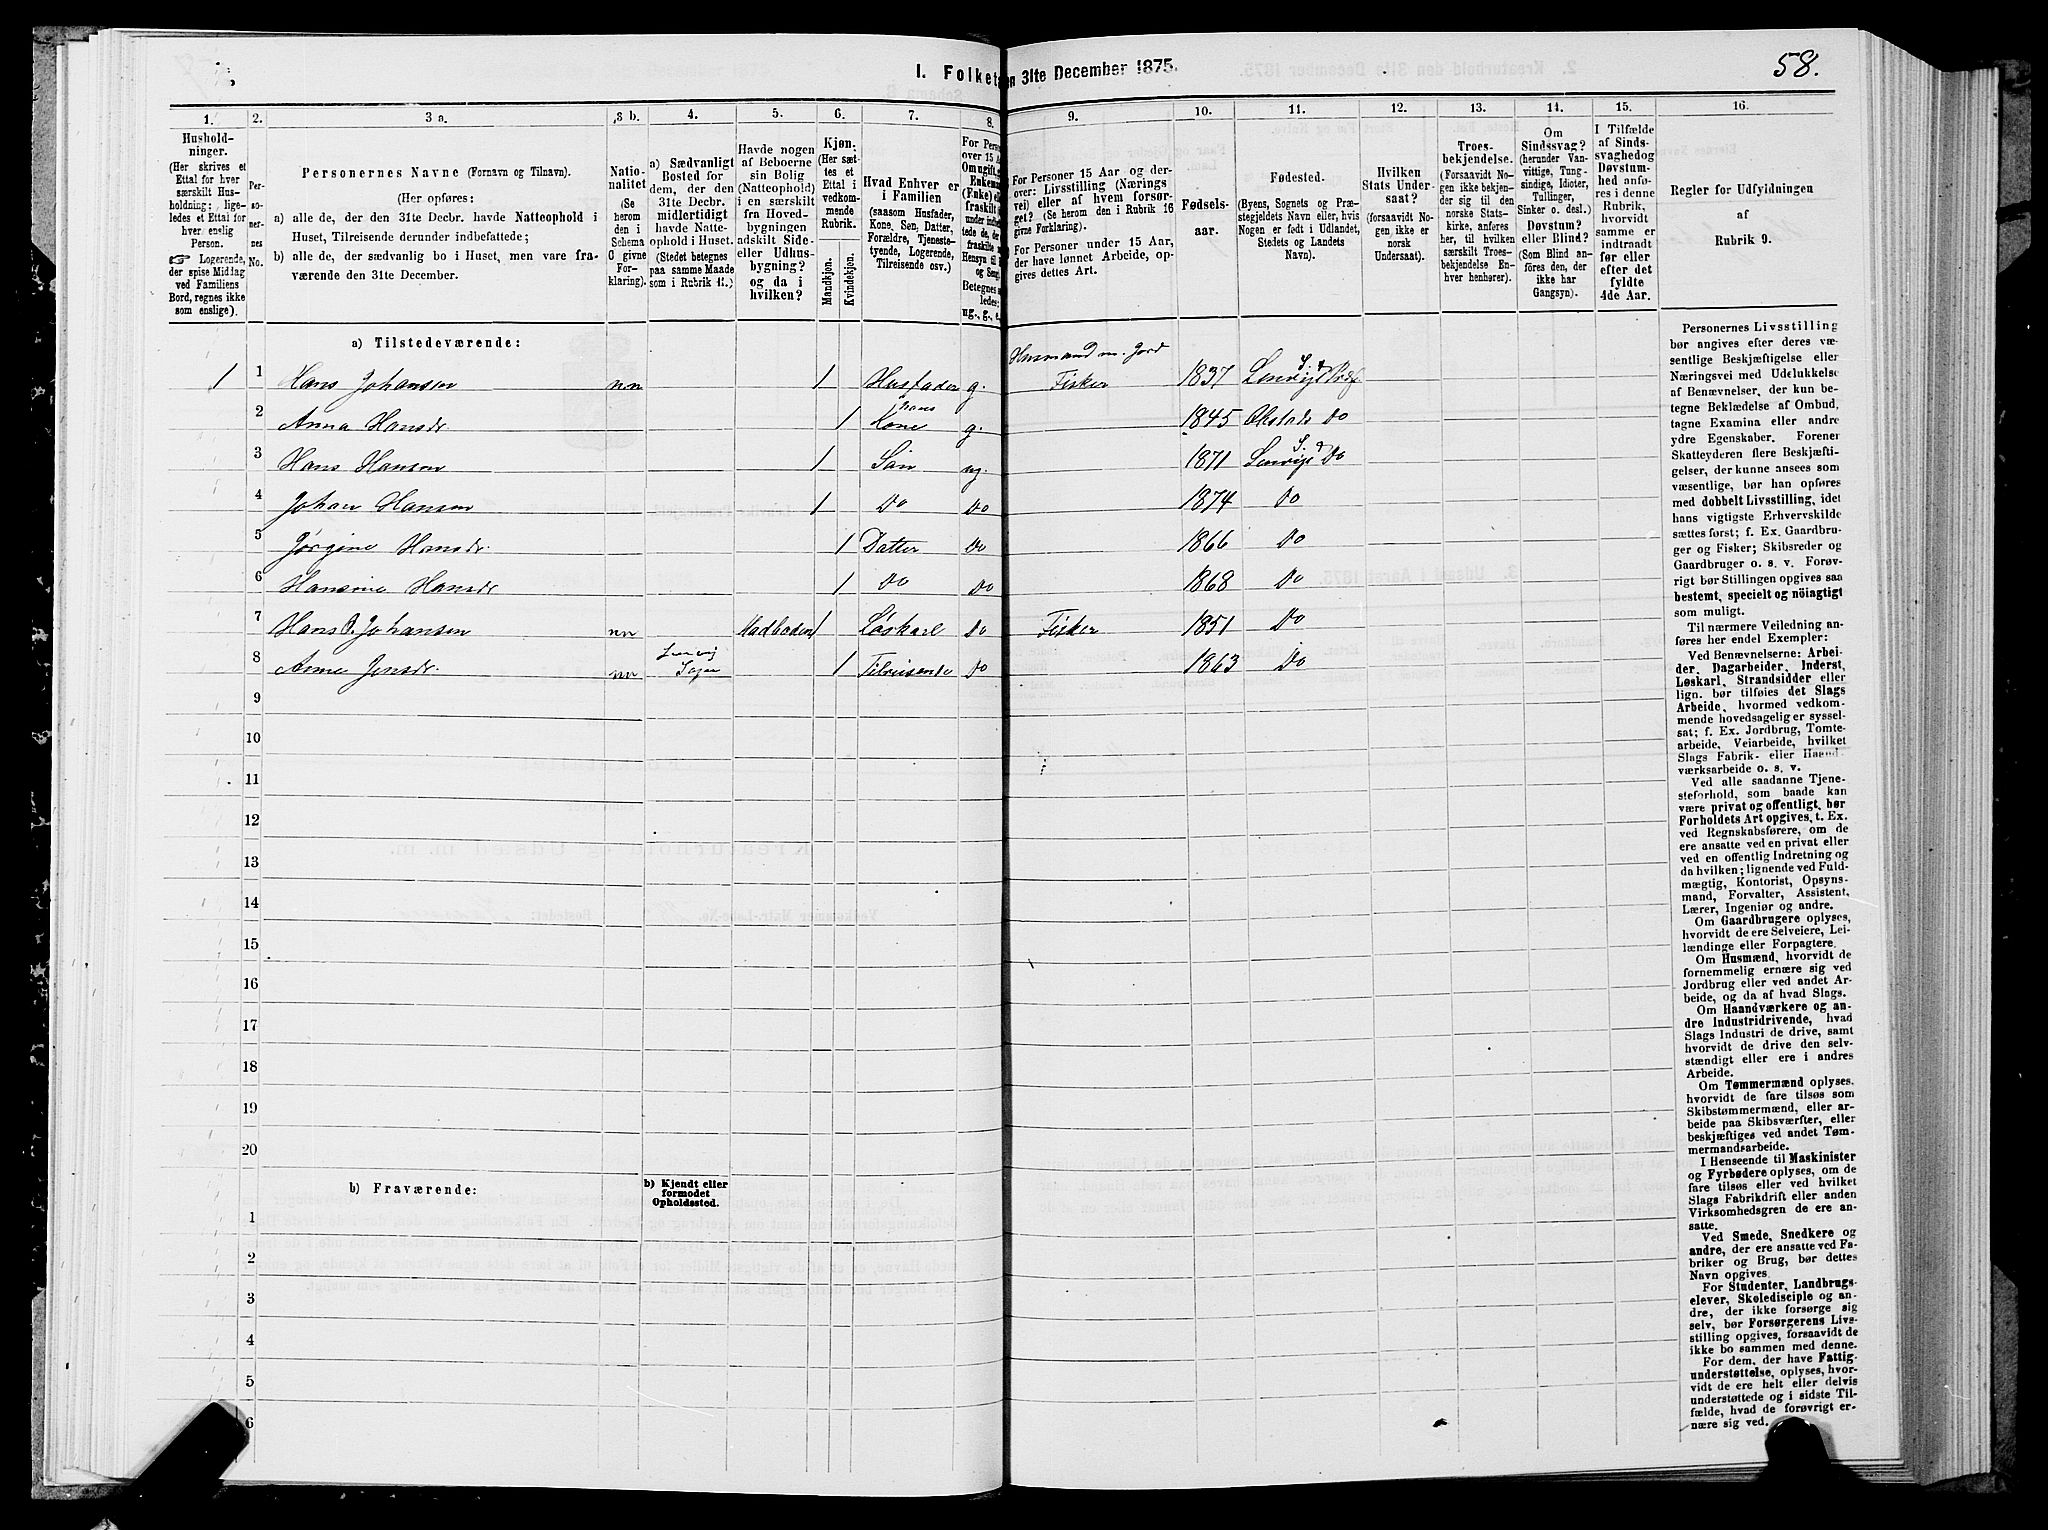 58.
I. Folket
n 31te December 1875.
1.
2.
3 a.
3 b.
4.
5.
6.
7.
8.
9.
10.
11.
12.
13.
14.
15.
16.
Hushold-
ninger.
(Her skrives et
Ettal for hver
særskilt Hus-
holdning; lige-
ledes et Ettal for
hver enslig
Person.
☞ Logerende,
der spise Middag
ved Familiens
Bord, regnes ikke
som enslige).
Per-
so-
ner-
nes
No.
Personernes Navne (Fornavn og Tilnavn).
(Her opføres:
a) alle de, der den 31te Decbr. havde Natteophold i
Huset, Tilreisende derunder indbefattede;
b) alle de, der sædvanlig bo i Huset, men vare fra-
værende den 31te December.
Natio-
nalitet
(Se
herom
den i
Schema
C givne
For-
klaring).
a) Sædvanligt
Bosted for
dem, der den
31te Decbr.
midlertidigt
havde Natte-
ophold i Huset.
(Stedet betegnes
paa samme Maade
som i Rubrik 11.)
Havde nogen
af Beboerne
sin Bolig
(Natteophold)
i en særskilt
fra Hoved-
bygningen
adskilt Side-
eller Udhus-
bygning?
og da i
hvilken?
Kjøn:
(Her sæt-
tes et
Ettal i
vedkom-
mende
Rubrik.
Mandkjøn.
Kvindekjøn.
Hvad Enhver er
i Familien
(saasom Husfader,
Kone, Søn, Datter,
Forældre, Tjeneste-
tyende, Logerende,
Tilreisende osv.)
For Perso
over 15 Aa
Omugift, g
Enkema
(Enke) ell
fraskilt
under indbe
tede de, de
fraskilte
Hensyn til
og Seng
Betegnes
ledes;
ug., g., e.,
For Personer 15 Aar og der-
over: Livsstilling (Nærings
vei) eller af hvem forsør-
get? (Se herom den i Rubrik 16
givne Forklaring).
For Personer under 15 Aar,
der have lønnet Arbeide, op-
gives dettes Art.
Fødsels-
aar.
Fødested.
(Byens, Sognets og Præ-
stegjeldets Navn eller, hvis
Nogen er født i Udlandet,
Stedets og Landets
Navn).
Hvilken
Stats Under-
saat?
(forsaavidt No-
gen ikke er
norsk
Undersaat).
Troes-
bekjendelse.
(Forsaavidt No-
gen ikke bekjen-
der sig til den
norske Stats-
kirke, anføres
her, til hvilken
særskilt Troes-
bekjendelse En-
hver henhører).
Om
Sindssvag?
(herunder Van-
vittige, Tung-
sindige, Idioter,
Tullinger,
Sinker o. desl.)
Døvstum?
eller Blind?
(Som Blind an-
føres den, der
ikke har
Gangsyn).
I Tilfælde
af Sinds-
svaghed og
Døvstum-
hed anfø-
res i denne
Rubrik,
hvorvidt
samme er
indtraadt
før eller
efter det
fyldte
4de Aar.
Regler for Udfyldningen
af
Rubrik 9.
a) Tilstedeværende:
1 1 Hans Johansen nn 1 Husfader g. Husmand m. Jord Fisker 1837 Lenvigs S. Prdgj
2 Anna Hansdr. 1 hans Kone g. 1845 do
3 Hans Hansen 1 Søn ug. 1871 Lenvigs S. do
4 Johan Hansen 1 do do 1874 do
5 Jørgine Hansdr. 1 Datter do 1866 do
6 Hansine Hansdr 1 do do 1868 do
7 Hans J. Johansen nn Madboden 1 Løskarl do Fisker 1851 do
8 Anne Jensdr. nn Lenvig Sogn 1 Tilreisende do 1863 do
9
10
11
12
13
14
15
16
17
18
19
20
b) Fraværende:
b) Kjendt eller
formodet
Opholdssted.
1
2
3
4
5
6
Personernes Livsstilling
bør angives efter deres væ-
sentlige Beskjæftigelse eller
Næringsvei med Udelukkelse
af Benævnelser, der kun be-
tegne Beklædelse af Ombud,
tagne Examina eller andre
ydre Egenskaber. Forener
Skatteyderen flere Beskjæfti-
gelser, der kunne ansees som
væsentlige, bør han opføres
med dobbelt Livsstilling, idet
hans vigtigste Erhvervskilde
sættes først; f. Ex. Gaardbru-
ger og Fisker; Skibsreder og
Gaardbruger o. s. v. Forøv-
rigt bør Stillingen opgives saa
bestemt, specielt og nöiagtigt
som muligt.
Til nærmere Veiledning an-
føres her endel Exempler:
Ved Benævnelserne: Arbei-
der, Dagarbeider, Inderst,
Løskarl, Strandsidder eller
lign. bør tilføies det Slags
Arbeide, hvormed vedkom-
mende hovedsagelig er syssel-
sat; f. Ex. Jordbrug, Tomte-
arbeide, Veiarbeide, hvilket
Slags Fabrik- eller Haand-
værksarbeide o. s. v.
Ved alle saadanne Tjene-
steforhold, som baade kan
være privat og offentligt, bør
Forholdets Art opgives, t. Ex.
ved Regnskabsførere, om de
ere ansatte ved en privat eller
ved en offentlig Indretning og
da hvilken; lignende ved Fuld-
mægtig, Kontorist, Opsyns-
mand, Forvalter, Assistent,
Lærer, Ingeniør og andre.
Om Gaardbrugere oplyses,
hvorvidt de ere Selveiere, Lei-
lændinge eller Forpagtere.
Om Husmænd, hvorvidt de
fornemmelig ernære sig ved
Jordbrug eller ved andet Ar-
beide, og da af hvad Slags.
Om Haandværkere og an-
dre Industridrivende, hvad
Slags Industri de drive, samt
hvorvidt de drive den selv-
stændigt eller ere i andres
Arbeide.
Om Tømmermænd oplyses,
hvorvidt de fare tilsøs som
Skibstømmermænd, eller ar-
beide paa Skibsværfter, eller
beskjæftiges ved andet Tøm-
mermandsarbeide.
I Henseende til Maskinister
og Fyrbødere oplyses, om de
fare tilsøs eller ved hvilket
Slags Fabrikdrift eller anden
Virksomhedsgren de ere an-
satte.
Ved Smede, Snedkere og
andre, der ere ansatte ved Fa-
briker og Brug, bør dettes
Navn opgives.
For Studenter, Landbrugs-
elever, Skoledisciple og an-
dre, der ikke forsørge sig
selv, bør Forsørgerens Livs-
stilling opgives, forsaavidt de
ikke bo sammen med denne.
For dem, der have Fattig-
understøttelse, oplyses, hvor-
vidt de ere helt eller delvis
understøttede og i sidste Til-
fælde, hvad de forøvrigt er-
nære sig ved.